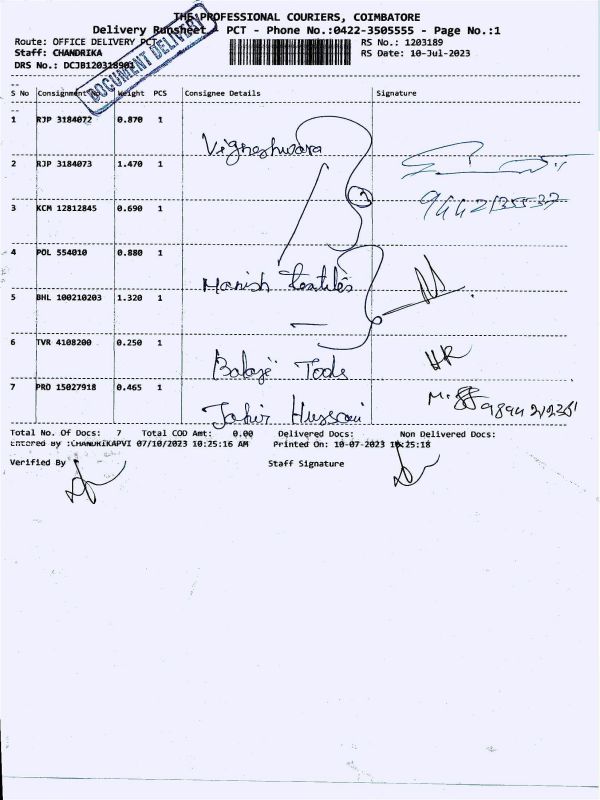 THE PROFESSIONAL COURIERS, COIMBATORE
Delivery Runsheet PCT - Phone No.:0422-3505555 - Page No.:1
Route: OFFICE DELIVERY PCT RS No.: 1203189
Staff: CHANDRIKA RS Date: 10-Jul-2023
DRS No.: DCJB120318901
DOCUMENT DELIVERY
S No Consignment No. Weight PCS Consignee Details Signature
1 RJP 3184072 0.870 1 Vigneshwara
2 RJP 3184073 1.470 1
3 KCM 12812845 0.690 1 3
4 POL 554010 0.880 1 Manish Textiles
5 BHL 100210203 1.320 1
6 TVR 4108200 0.250 1 Balaji Tools HR
7 PRO 15027918 0.465 1 Jahir Hussain
Total No. Of Docs: 7 Total COD Amt: 0.00 Delivered Docs: Non Delivered Docs:
Entered By :CHANDRIKAPVI 07/10/2023 10:25:16 AM Printed On: 10-07-2023 10:25:18
Verified By Staff Signature